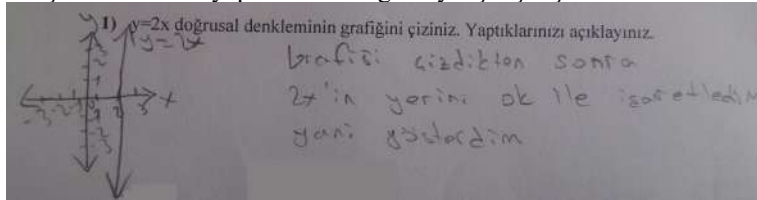 1) y=2x doğrusal denkleminin grafiğini çiziniz. Yaptıklarınızı açıklayınız.
y
y=2x
Grafiği çizdikten sonra
2x'in yerini ok ile işaretledim
yani gösterdim
x